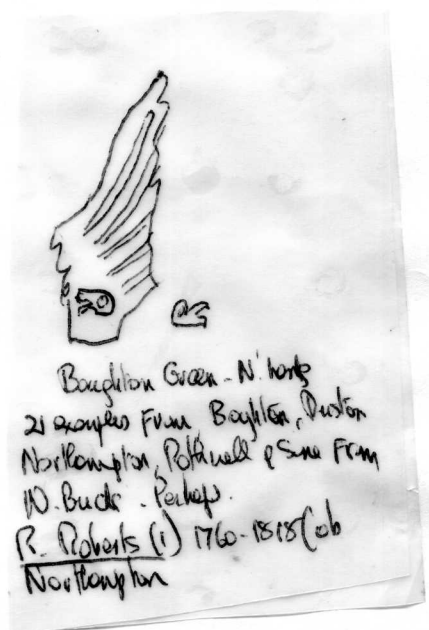 Boughton Green - N'hants
21 examples From Boghton, Duston
Northampton, Pothwell & Some From
W. Bucks - Perhaps.
R. Roberts (1) 1760-1818 (ob
Northampton